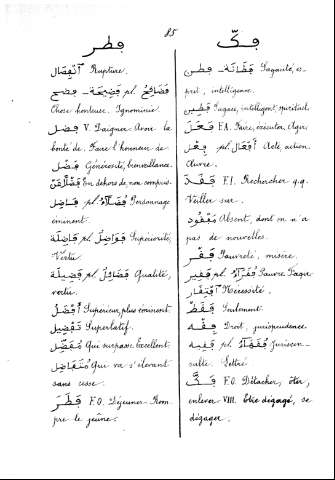 85
فطر
اَنْفِصَال Rupture.
فضح - فَضِيحَة pl. فَضَائِح
Chose honteuse. Ignominie.
فضل V. Daigner. Avoir la
bonté de. Faire l'honneur de
فَضْل Générosité, bienveillance.
فَضْلًا عَنْ En dehors de, non compris.
فَاضِل pl. فُضَلَاء Personnage
éminent.
فَاضِلَة pl. فَوَاضِل Supériorité,
Vertu
فَضِيلَة pl. فَضَائِل Qualité,
vertu.
أَفْضَل Supérieur, plus éminent.
تَفْضِيل Superlatif.
مُفَضَّل Qui surpasse. Excellent.
مُتَفَاضِل Qui va s'élevant
sans cesse.
فَطَرَ F.O. Déjeuner. Rom-
pre le jeûne.
فكّ
فطن - فَطَانَة Sagacité, es-
prit, intelligence.
فَطِين Sagace, intelligent, spirituel.
فَعَلَ F.A. Faire, exécuter, Agir.
فِعْل pl. أَفْعَال Acte, action.
Œuvre.
فَقَدَ F.I. Rechercher q.q.
Veiller sur.
مَفْقُود Absent, dont on n'a
pas de nouvelles.
فَقْر Pauvreté, misère.
فَقِير pl. فُقَرَاء Pauvre. Faqir.
اَفْتِقَار Nécessité.
فَقَطْ Seulement.
فِقْه Droit, jurisprudence.
فَقِيه pl. فُقَهَاء Juriscon-
sulte. Lettré.
فَكَّ F.O. Détacher, ôter,
enlever VIII. être dégagé, se
dégager.